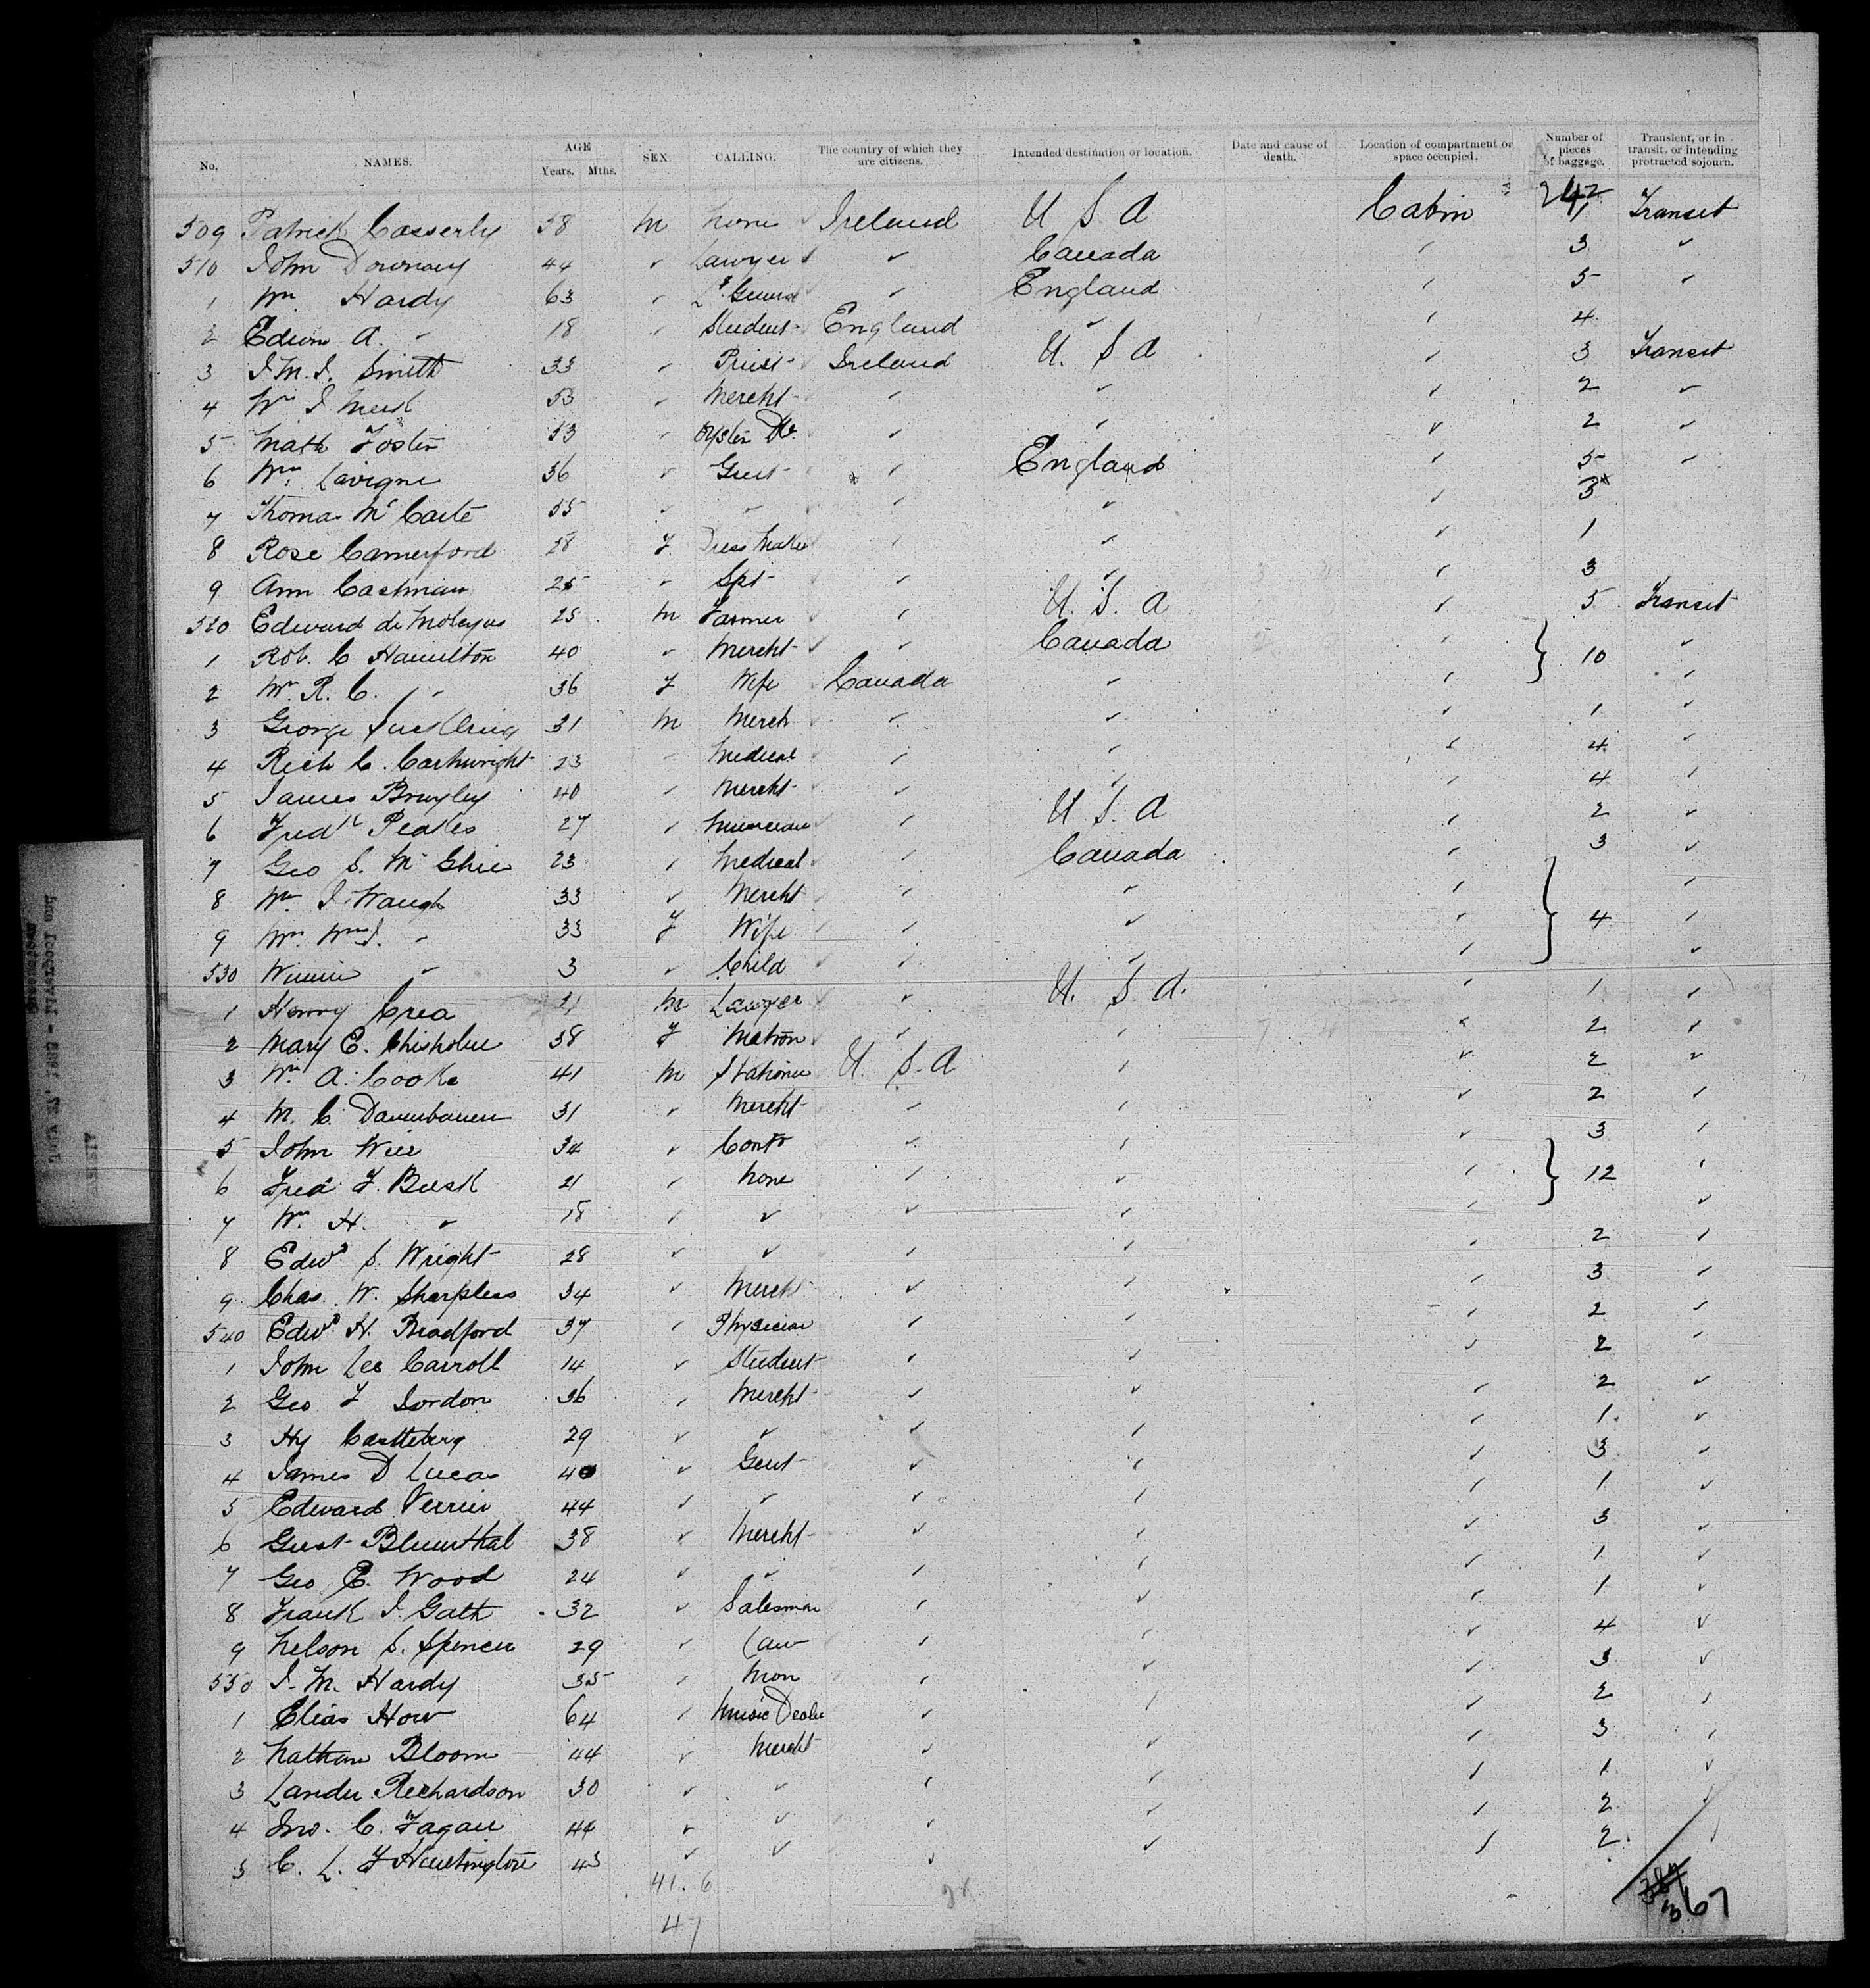 No. NAMES. AGE Years. Mths. SEX. CALLING. The country of which they are citizens. Intended destination or location. Date and cause of death. Location of compartment or space occupied. Number of pieces of baggage. Transient, or in transit, or intending protracted sojourn.
242
509 Patrick Casserly 58 M None Ireland U S A Cabin 1 Transit
510 John Downary 44 ✓ Lawyer ✓ Canada ✓ 3 ✓
1 Wm Hardy 63 ✓ ✓ England ✓ 5 ✓
2 Edwin A. " 18 ✓ Student England ✓ ✓ 4
3 J. M. J. Smith 33 ✓ Priest Ireland U. S A ✓ 3 Transit
4 Wm J 53 ✓ Mercht ✓ ✓ ✓ 2 ✓
5 Math Foster 53 ✓ Oyster ✓ ✓ ✓ 2 ✓
6 Wm Lavigne 36 ✓ Gent ✓ England ✓ 5 ✓
7 Thomas McCarte 55 ✓ ✓ ✓ ✓ ✓ 3
8 Rose Camerford 28 F Dress Maker ✓ ✓ ✓ 1
9 Ann Eastman 25 ✓ Spt ✓ ✓ ✓ 3
520 Edward de Moleyns 25 M Farmer ✓ U. S. A ✓ 5 Transit
1 Rob. C Hamilton 40 ✓ Mercht ✓ Canada ✓ 10 ✓
2 Mrs R. C. " 36 F Wife Canada ✓ ✓ ✓
3 George 31 M Merch ✓ ✓ ✓ 1 ✓
4 Rich C. Cartwright 23 ✓ Medical ✓ ✓ ✓ 4 ✓
5 James Brayley 40 ✓ Mercht ✓ ✓ ✓ 4 ✓
6 Fredk Peakes 27 ✓ Musician ✓ U S. A ✓ 2 ✓
7 Geo S. McGhie 23 ✓ Medical ✓ Canada ✓ 3 ✓
8 Wm J Waugh 33 ✓ Mercht ✓ ✓ ✓ ✓
9 Mrs Wm J. " 33 F Wife ✓ ✓ ✓ 4 ✓
530 Winnie " 3 ✓ Child ✓ ✓ ✓ ✓
1 Henry Crea M Lawyer ✓ U. S A. ✓ 1 ✓
2 Mary E. Chisholm 38 F Matron ✓ ✓ ✓ 2 ✓
3 Wm A. Cooke 41 M Stationer U. S. A ✓ ✓ 2 ✓
4 M. C. Dannbaum 31 ✓ Mercht ✓ ✓ ✓ 2 ✓
5 John Wier 34 ✓ Contr ✓ ✓ ✓ 3 ✓
6 Fred F. Busk 21 ✓ None ✓ ✓ ✓ 12 ✓
7 Wm H. " 18 ✓ ✓ ✓ ✓ ✓ ✓
8 Edwd S. Wright 28 ✓ ✓ ✓ ✓ ✓ 2 ✓
9 Chas. W. Sharpless 34 ✓ Merch ✓ ✓ ✓ 3 ✓
540 Edwd H. Bradford 37 ✓ Physician ✓ ✓ ✓ 2 ✓
1 John Lee Carroll 14 ✓ Student ✓ ✓ ✓ 2 ✓
2 Geo F Jordon 36 ✓ Mercht ✓ ✓ ✓ 2 ✓
3 Hy Castleberg 29 ✓ ✓ ✓ ✓ ✓ 1 ✓
4 James D Lucas 40 ✓ Gent ✓ ✓ ✓ 3 ✓
5 Edward Verrier 44 ✓ ✓ ✓ ✓ ✓ 1 ✓
6 Gust Blumthal 38 ✓ Mercht ✓ ✓ ✓ 3 ✓
7 Geo E. Wood 24 ✓ ✓ ✓ ✓ ✓ 1 ✓
8 Frank J. Gath 32 ✓ Salesman ✓ ✓ ✓ 1 ✓
9 Nelson S. Spencer 29 ✓ Law ✓ ✓ ✓ 4 ✓
550 J. M. Hardy 35 ✓ ✓ ✓ ✓ 3 ✓
1 Elias How 64 ✓ Music Dealer ✓ ✓ ✓ 2 ✓
2 Nathan Bloom 44 ✓ Mercht ✓ ✓ ✓ 3 ✓
3 Lander Richardson 30 ✓ ✓ ✓ ✓ ✓ 1 ✓
4 Jno. C. Fagan 44 ✓ ✓ ✓ ✓ ✓ 2 ✓
5 C. L. F Huntington 43 ✓ ✓ ✓ ✓ ✓ 2 ✓
41. 6
47
67